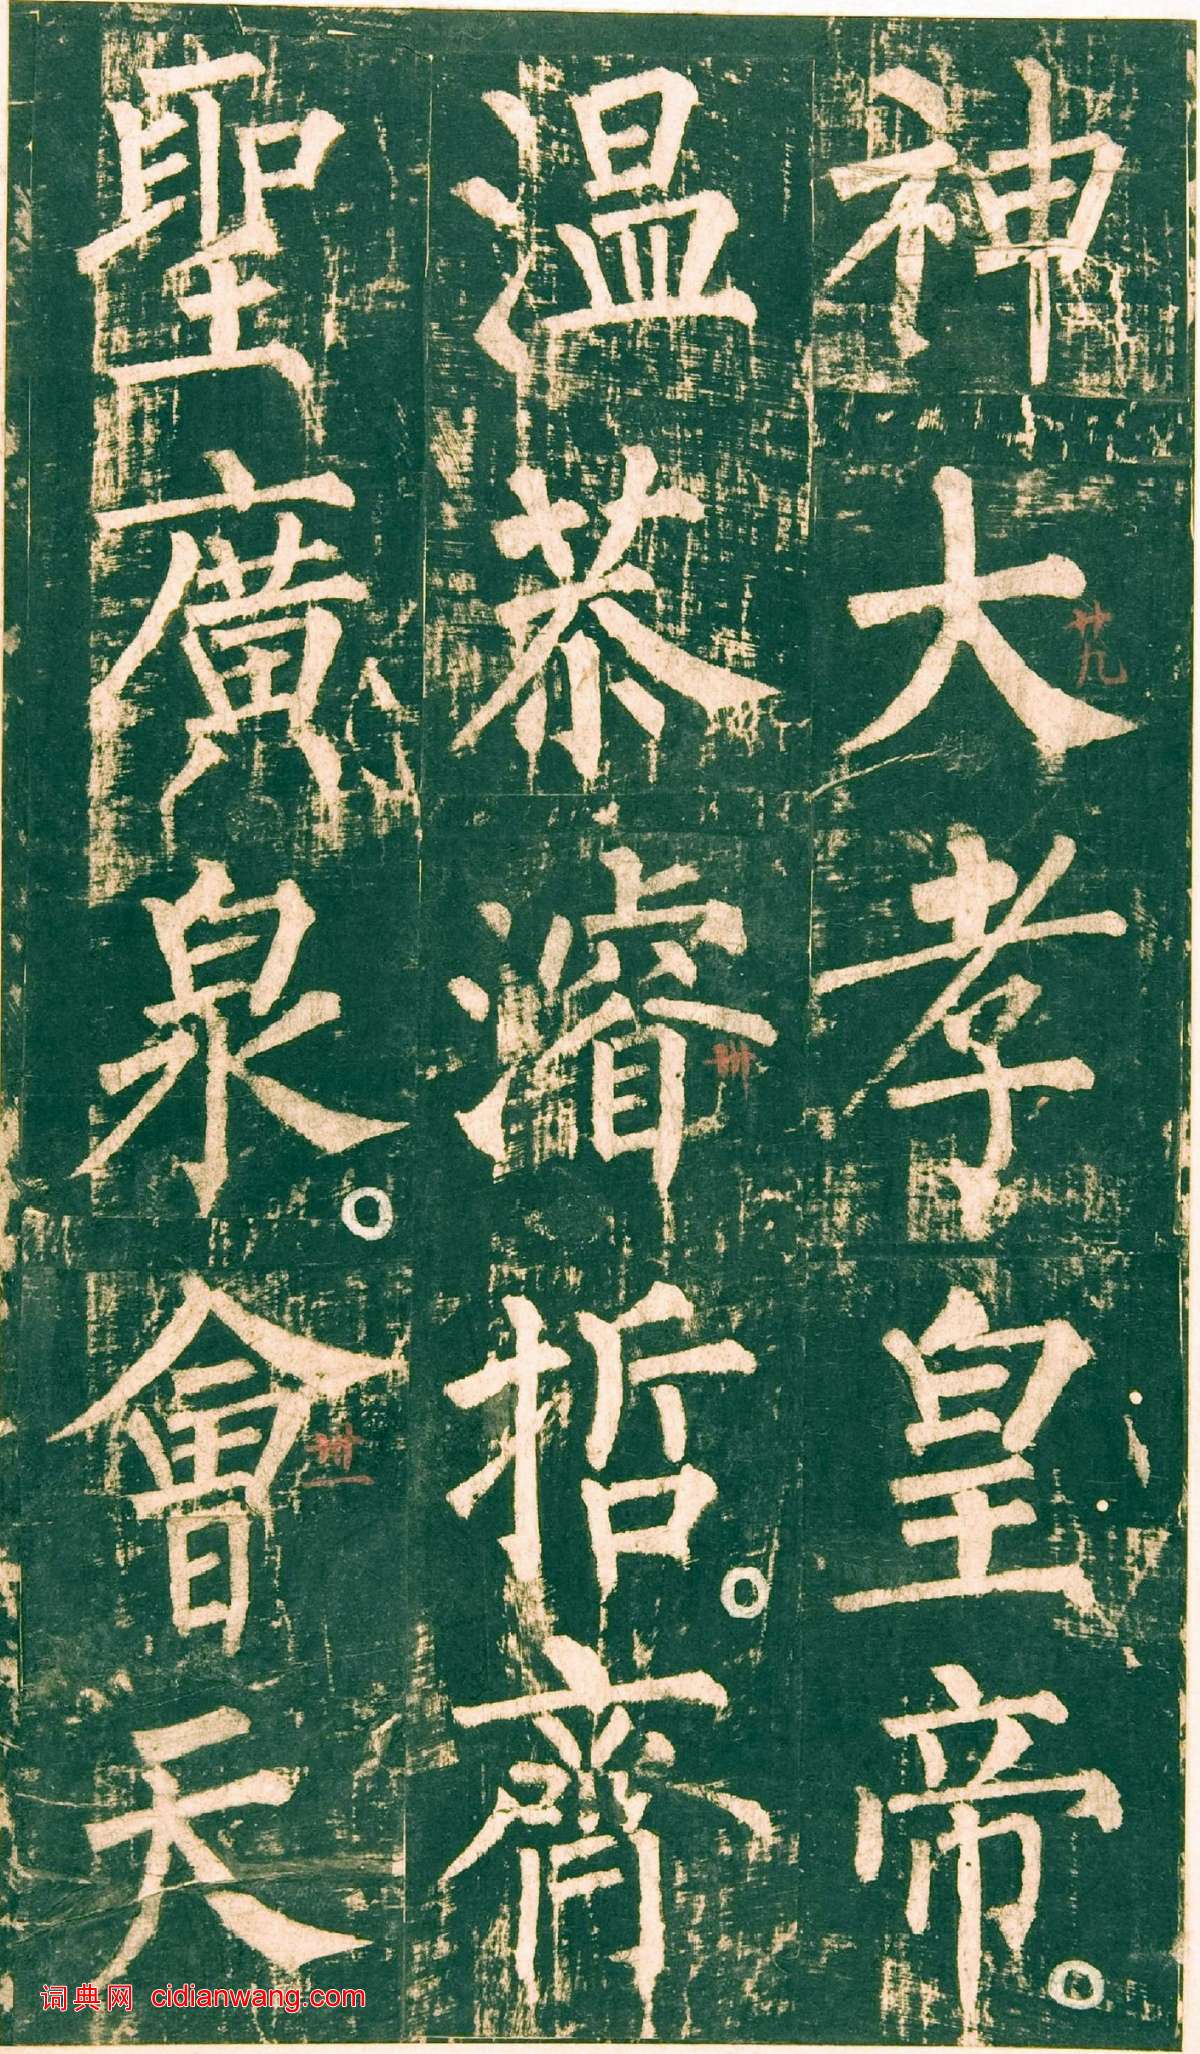 神大孝皇帝。
溫恭濬哲。齊
聖廣泉。會天
廿九
卅
卅一
词典网 cidianwang.com